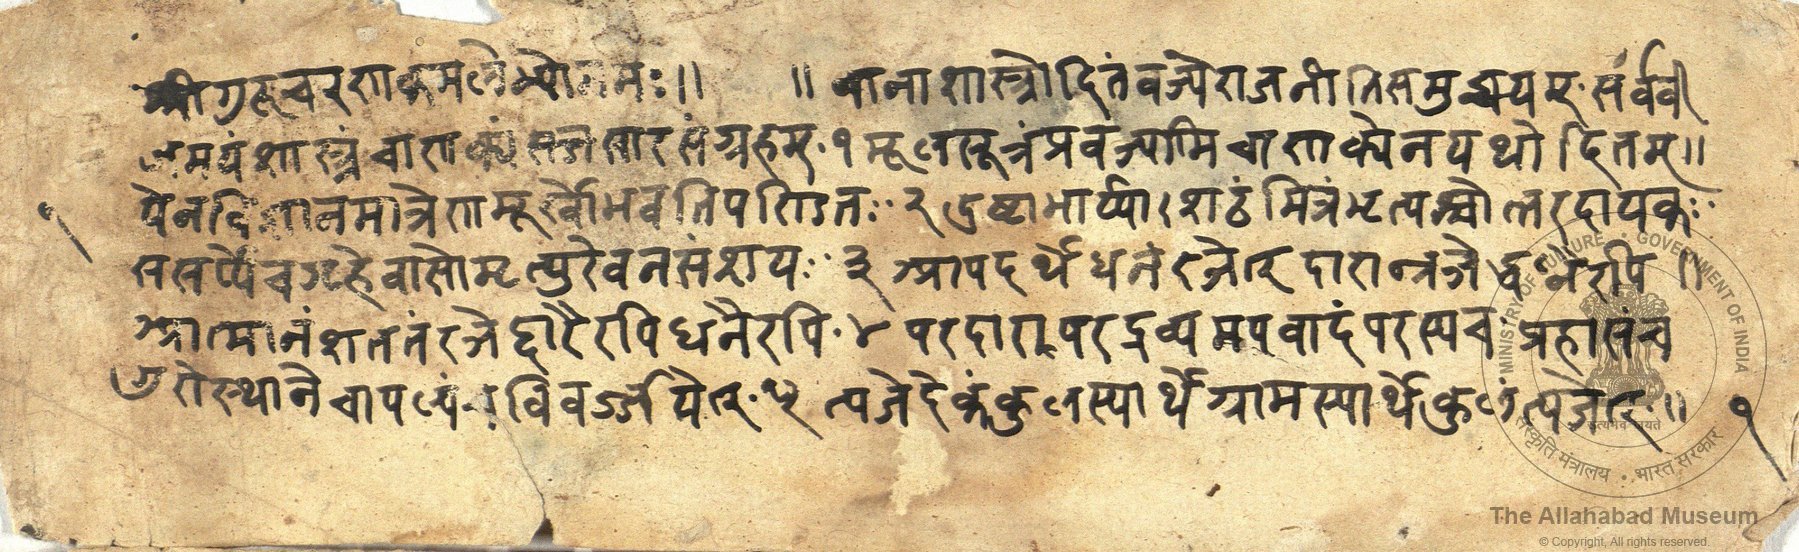 श्रीगुरुचरणकमलेभ्योनमः ।। ॥ नानाशास्त्रोदितं वक्ष्ये राजनीतिसमुच्चयम् . सर्ववी
जमयं शास्त्रं चाणक्यं सारसंग्रहम् . १ मूलसूत्रं प्रवक्ष्यामि चाणक्येन यथोदितम् ॥
येन विज्ञानमात्रेण मूर्खो भवति पण्डितः २ दुष्टा भार्य्या शठं मित्रं भृत्यश्चोत्तरदायकः
ससर्प्पे च गृहे वासो मृत्युरेव न संशयः ३ आपदर्थे धनं रक्षेत् दारान् रक्षेद्धनैरपि ॥
आत्मानं शततं रक्षेद्दारैरपि धनैरपि . ४ परदारा परद्रव्यमपवादं परस्य च प्रहासं च
गुरोस्थाने चापल्यं विवर्ज्जयेत् . ५ त्यजेदेकं कुलस्यार्थे ग्रामस्यार्थे कुलं त्यजेत् ॥
१
१
MINISTRY OF CULTURE • GOVERNMENT OF INDIA
सत्यमेव जयते
संस्कृति मंत्रालय • भारत सरकार
The Allahabad Museum
© Copyright, All rights reserved.